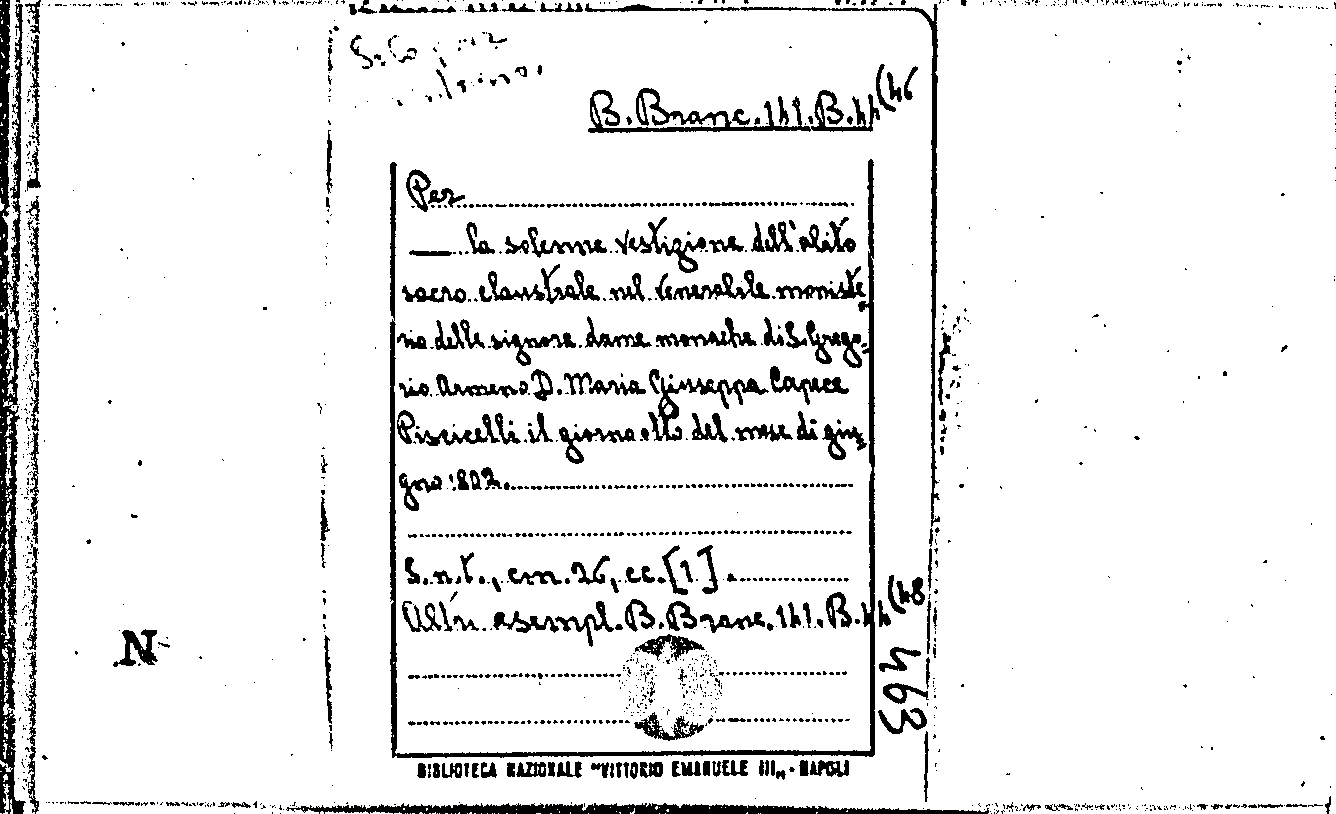 B. Branc. 141. B. 44 (46
Per
la solenne vestizione dell'abito
sacro claustrale nel venerabile moniste-
rio delle signore dame monache di S. Grego-
rio Armeno D. Maria Giuseppa Capece
Piscicelli il giorno otto del mese di giu-
gno 1802.
S.n.t., cm. 26, cc. [1].
Altri esempl. B. Branc. 141. B. 44 (48
463
N
BIBLIOTECA NAZIONALE "VITTORIO EMANUELE III„ - NAPOLI